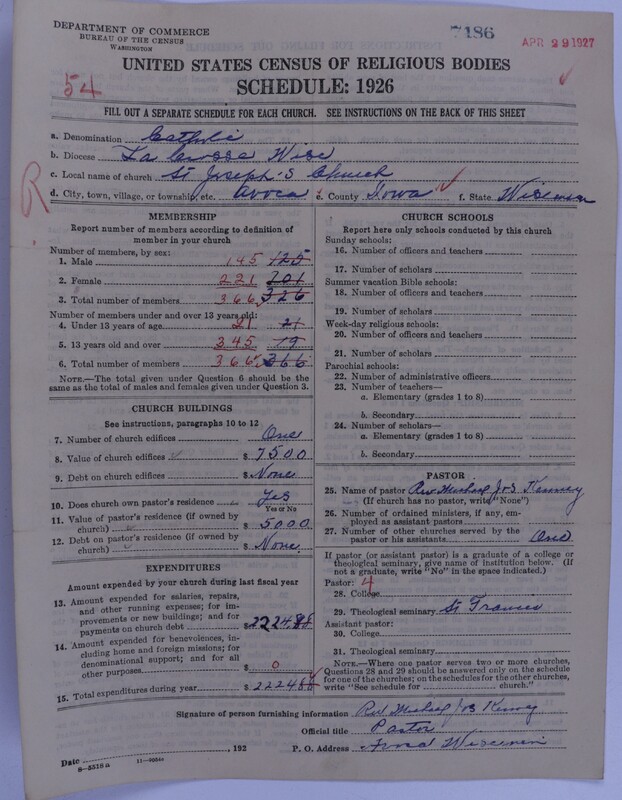 DEPARTMENT OF COMMERCE
BUREAU OF THE CENSUS
WASHINGTON
7186
APR 29 1927
UNITED STATES CENSUS OF RELIGIOUS BODIES
54
SCHEDULE: 1926
FILL OUT A SEPARATE SCHEDULE FOR EACH CHURCH. SEE INSTRUCTIONS ON THE BACK OF THIS SHEET
a. Denomination Catholic
b. Diocese La Crosse Wisc
c. Local name of church St Joseph's Church
d. City, town, village, or township, etc. Avoca e. County Iowa f. State Wisconsin
R
MEMBERSHIP
Report number of members according to definition of member in your church
Number of members, by sex:
1. Male 145 125
2. Female 221 201
3. Total number of members 366 326
Number of members under and over 13 years old:
4. Under 13 years of age 21 21
5. 13 years old and over 345
6. Total number of members 366 366
NOTE.—The total given under Question 6 should be the same as the total of males and females given under Question 3.
CHURCH BUILDINGS
See instructions, paragraphs 10 to 12
7. Number of church edifices One
8. Value of church edifices $ 7500
9. Debt on church edifices $ None
10. Does church own pastor's residence Yes
Yes or No
11. Value of pastor's residence (if owned by church) $ 5000
12. Debt on pastor's residence (if owned by church) $ None
EXPENDITURES
Amount expended by your church during last fiscal year
13. Amount expended for salaries, repairs, and other running expenses; for improvements or new buildings; and for payments on church debt $
14. Amount expended for benevolences, including home and foreign missions; for denominational support; and for all other purposes $ 0
15. Total expenditures during year $
CHURCH SCHOOLS
Report here only schools conducted by this church
Sunday schools:
16. Number of officers and teachers
17. Number of scholars
Summer vacation Bible schools:
18. Number of officers and teachers
19. Number of scholars
Week-day religious schools:
20. Number of officers and teachers
21. Number of scholars
Parochial schools:
22. Number of administrative officers
23. Number of teachers—
a. Elementary (grades 1 to 8)
b. Secondary
24. Number of scholars—
a. Elementary (grades 1 to 8)
b. Secondary
PASTOR
25. Name of pastor Rev Michael Jos Kenney
(If church has no pastor, write "None")
26. Number of ordained ministers, if any, employed as assistant pastors
27. Number of other churches served by the pastor or his assistants One
If pastor (or assistant pastor) is a graduate of a college or theological seminary, give name of institution below. (If not a graduate, write "No" in the space indicated.)
Pastor: 4
28. College
29. Theological seminary St Francis
Assistant pastor:
30. College
31. Theological seminary
NOTE.—Where one pastor serves two or more churches, Questions 28 and 29 should be answered only on the schedule for one of the churches; on the schedules for the other churches, write "See schedule for church."
Signature of person furnishing information Rev Michael Jos Kenney
Official title Pastor
Date , 192 P. O. Address Wisconsin
8—5518 a